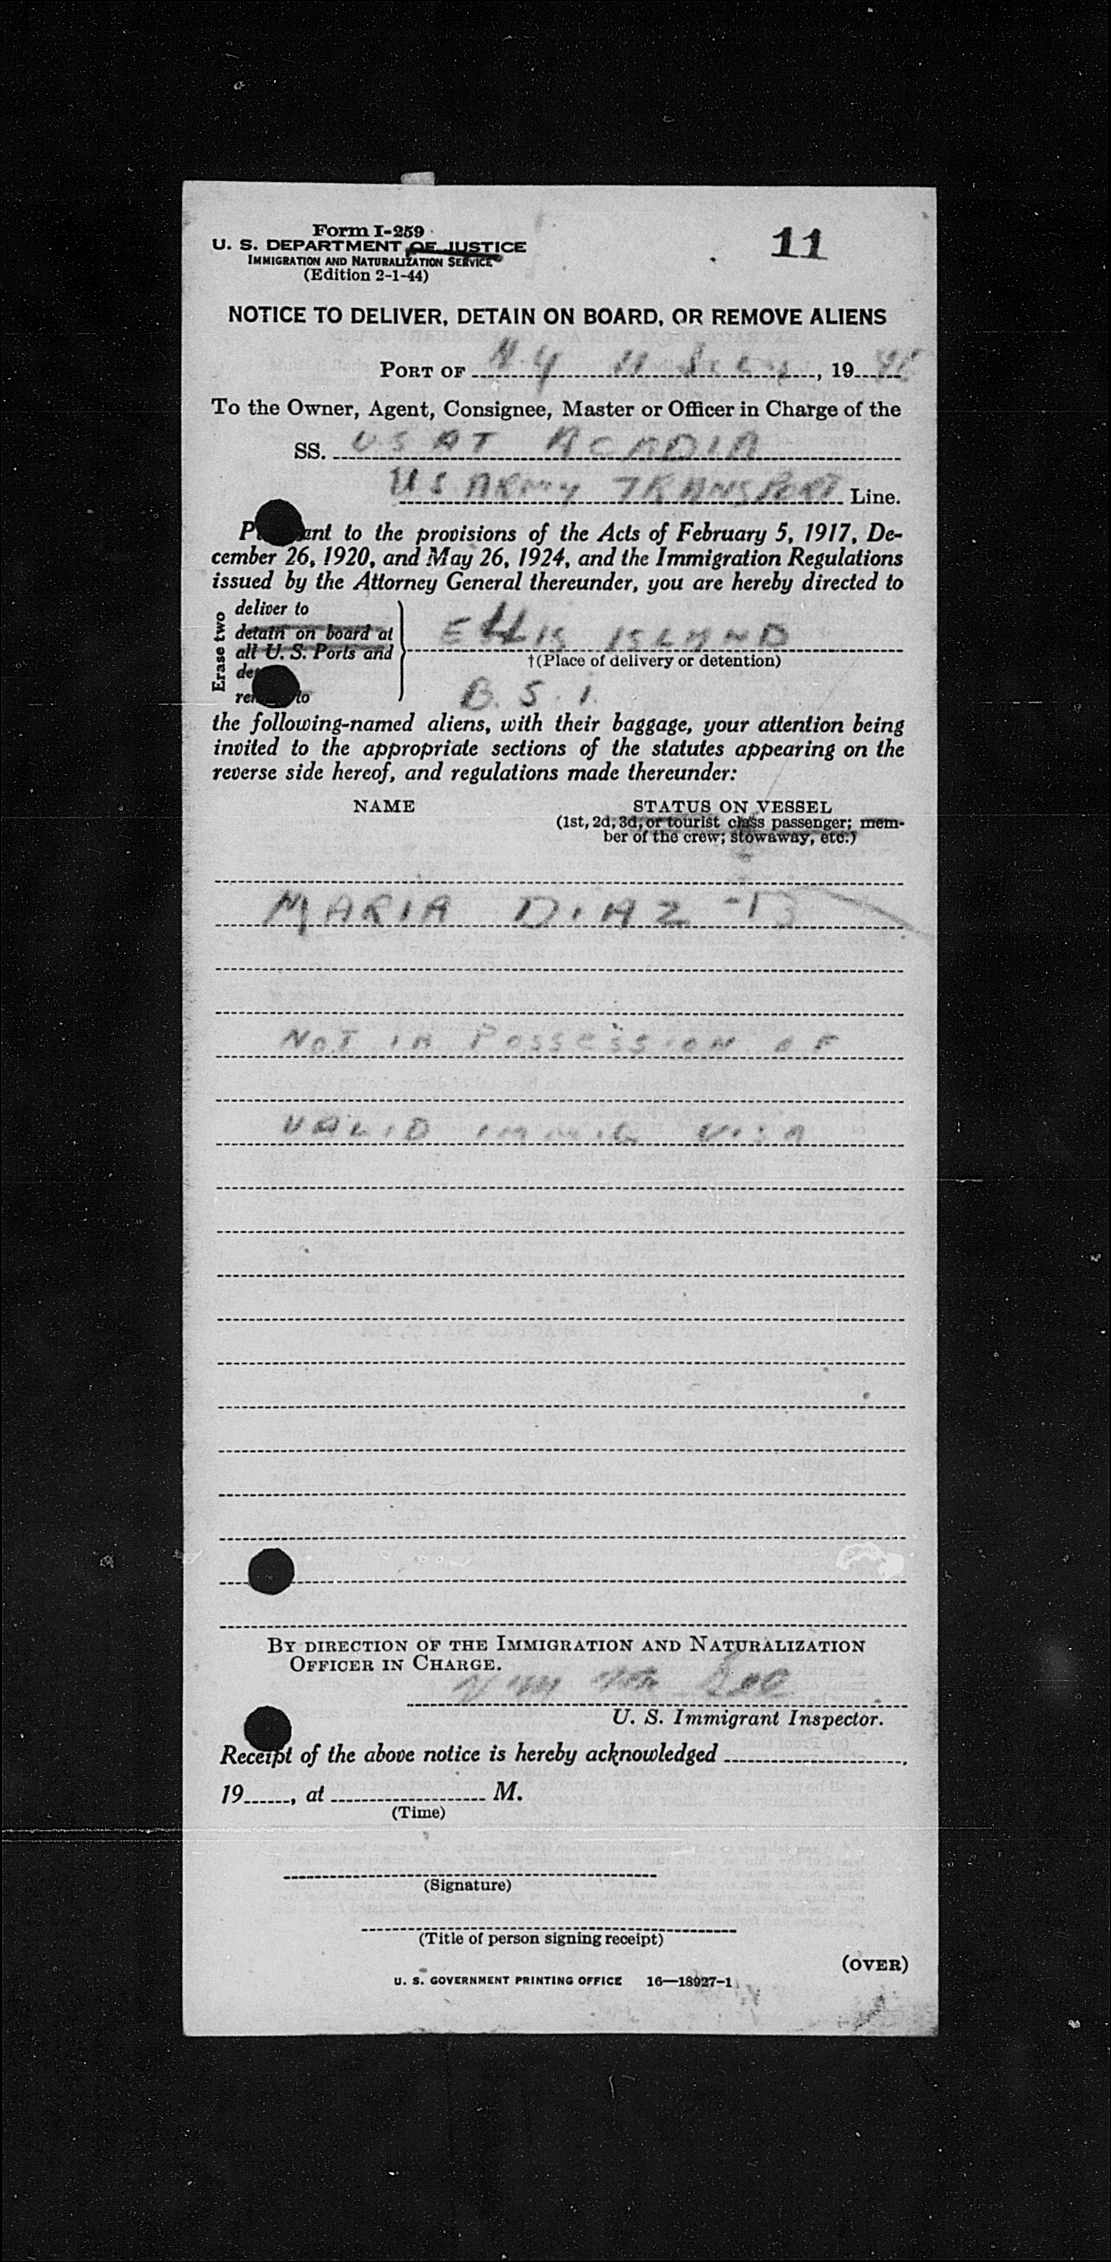 Form I-259
11
U. S. DEPARTMENT OF JUSTICE
IMMIGRATION AND NATURALIZATION SERVICE
(Edition 2-1-44)
NOTICE TO DELIVER, DETAIN ON BOARD, OR REMOVE ALIENS
PORT OF N.Y 11 , 19
To the Owner, Agent, Consignee, Master or Officer in Charge of the
SS. USAT ACADIA
US ARMY TRANSPORT Line.
to the provisions of the Acts of February 5, 1917, De-
cember 26, 1920, and May 26, 1924, and the Immigration Regulations
issued by the Attorney General thereunder, you are hereby directed to
Erase two
deliver to
detain on board at
all U. S. Ports and
to
ELLIS ISLAND
†(Place of delivery or detention)
B. S. I.
the following-named aliens, with their baggage, your attention being
invited to the appropriate sections of the statutes appearing on the
reverse side hereof, and regulations made thereunder:
NAME
STATUS ON VESSEL
(1st, 2d, 3d, or tourist class passenger; mem-
ber of the crew; stowaway, etc.)
MARIA DIAZ
NOT IN POSSESSION OF
VALID IMMIG VISA
BY DIRECTION OF THE IMMIGRATION AND NATURALIZATION
OFFICER IN CHARGE.
U. S. Immigrant Inspector.
Receipt of the above notice is hereby acknowledged
19, at M.
(Time)
(Signature)
(Title of person signing receipt)
(OVER)
U. S. GOVERNMENT PRINTING OFFICE 16—18927-1